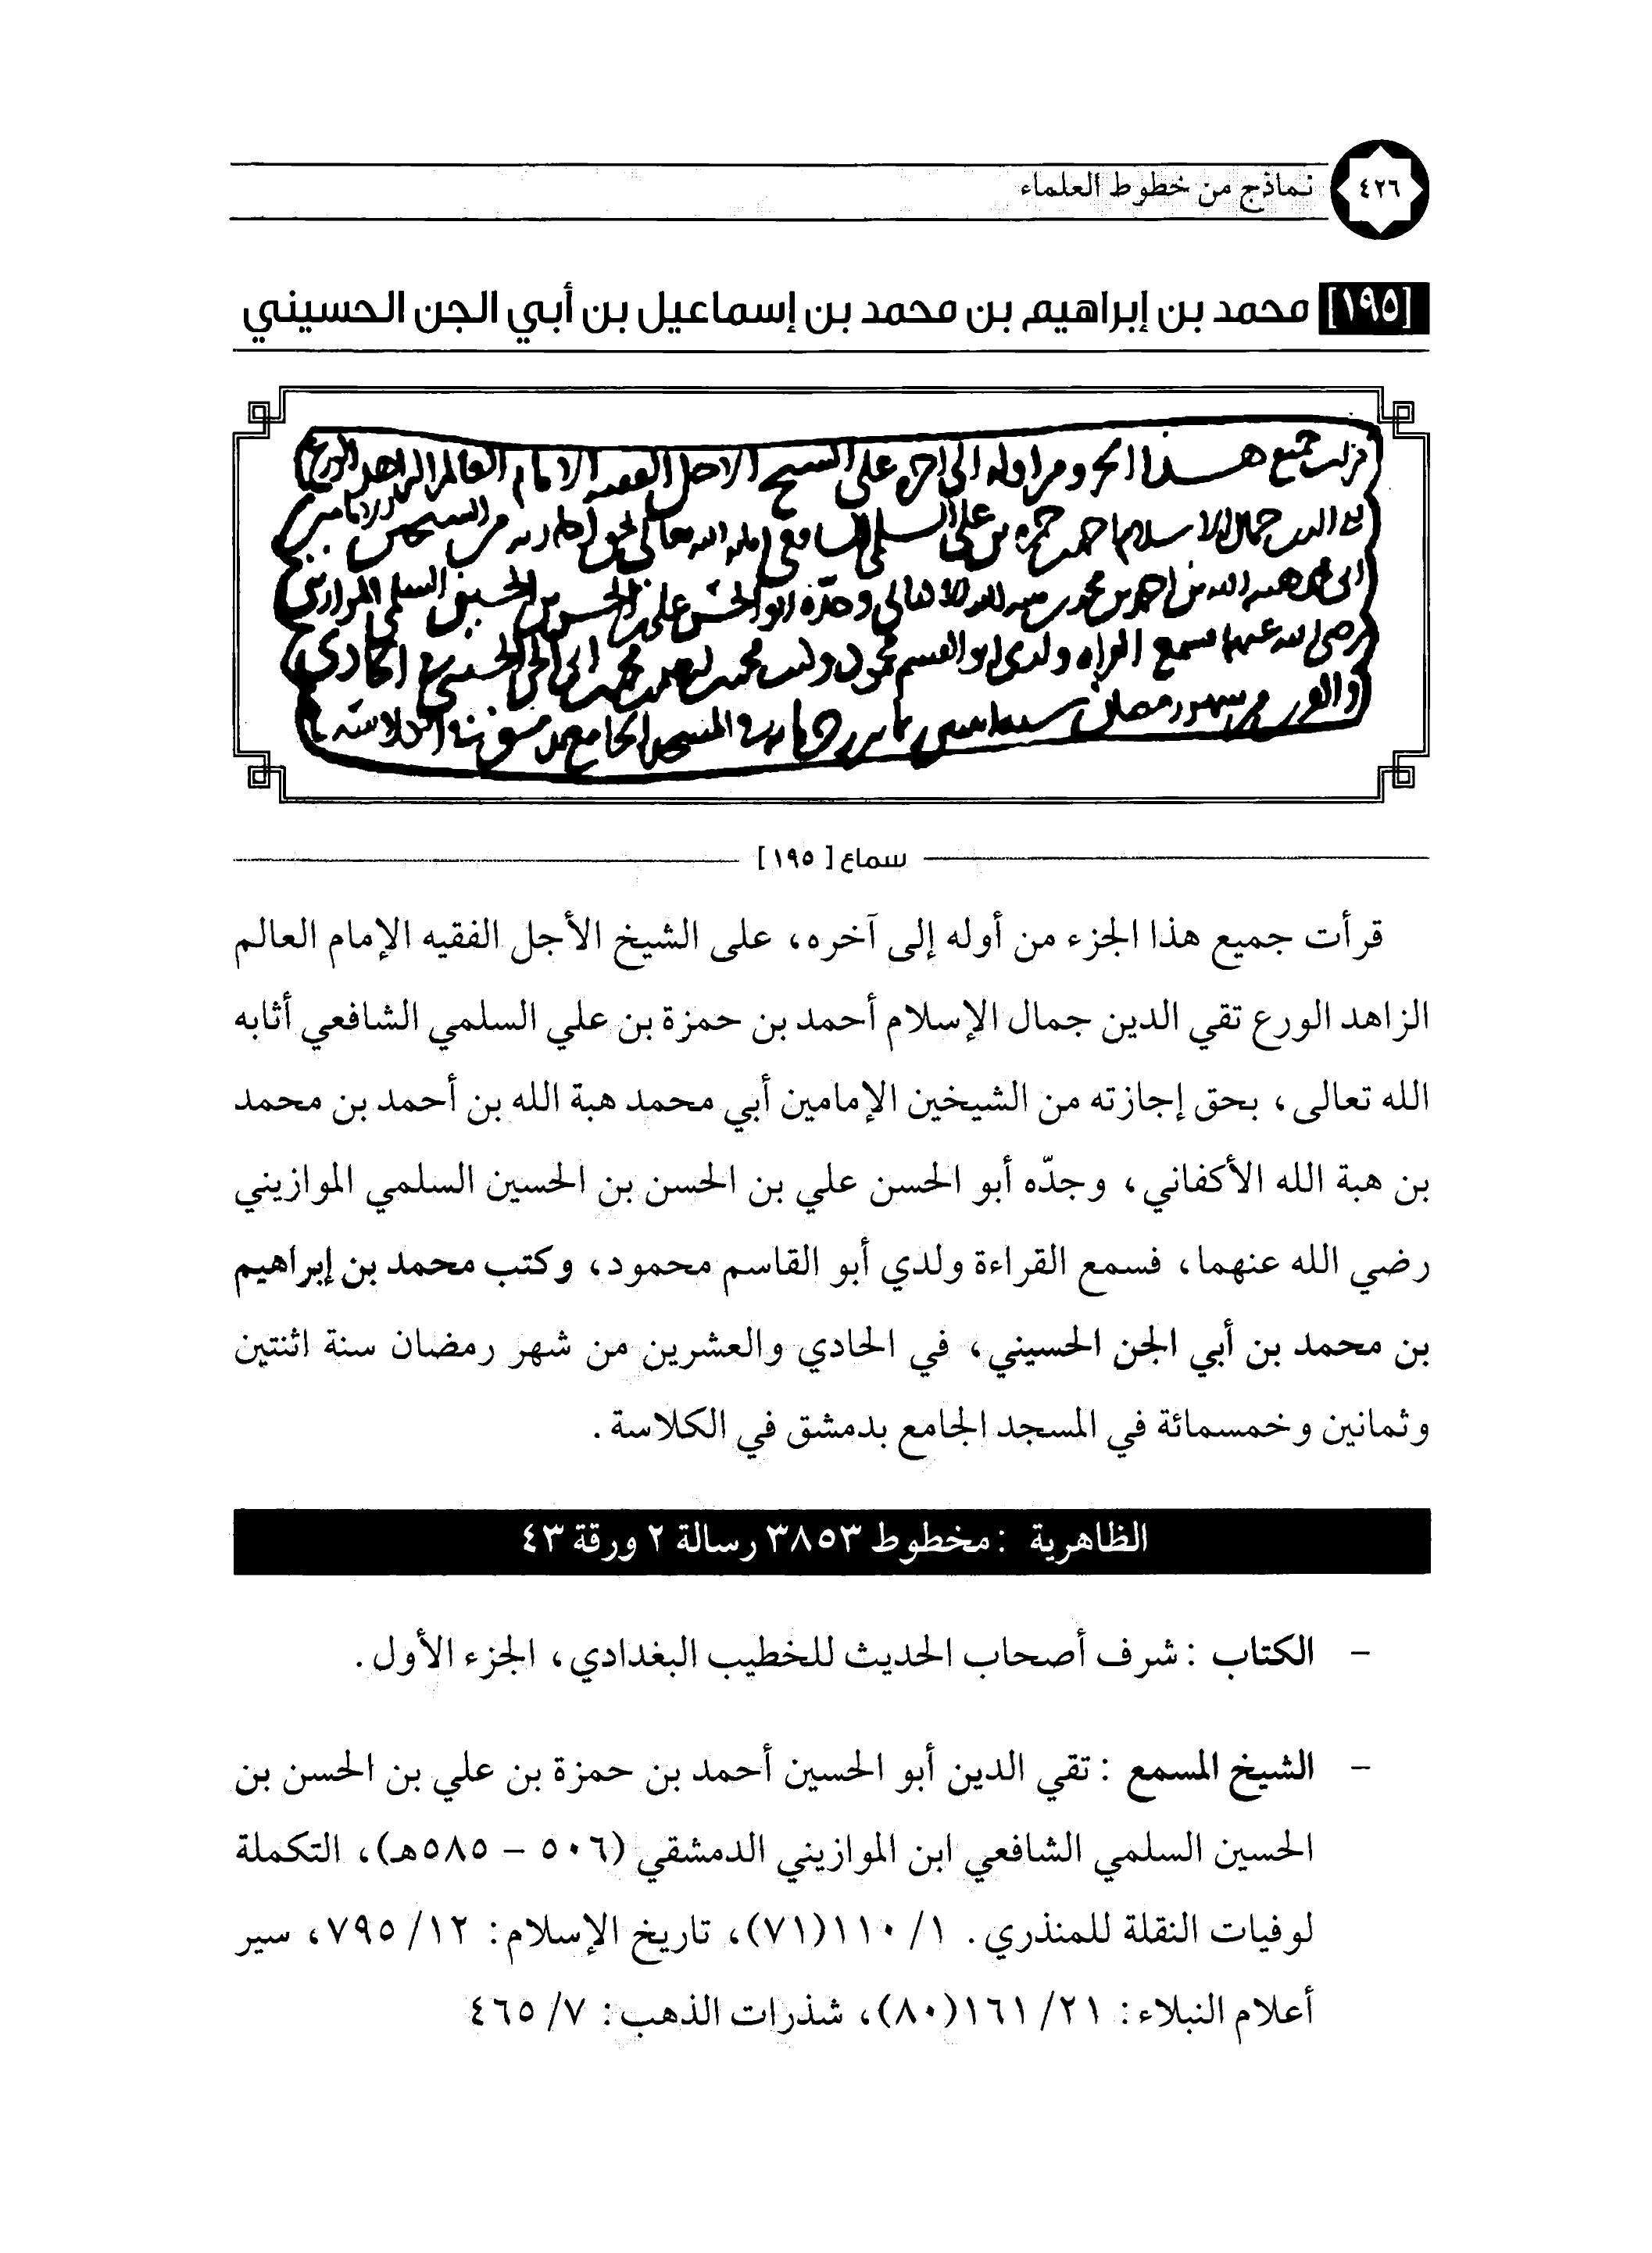 ٤٢٦
نماذج من خطوط العلماء
[١٩٥] محمد بن إبراهيم بن محمد بن إسماعيل بن أبي الجن الحسيني
جميع هذا الجزو من اوله الى اخره على الشيخ الاجل الفقيه الامام العالم الزاهد الورع
سماع [١٩٥]
قرأت جميع هذا الجزء من أوله إلى آخره، على الشيخ الأجل الفقيه الإمام العالم
الزاهد الورع تقي الدين جمال الإسلام أحمد بن حمزة بن علي السلمي الشافعي أثابه
الله تعالى، بحق إجازته من الشيخين الإمامين أبي محمد هبة الله بن أحمد بن محمد
بن هبة الله الأكفاني، وجدّه أبو الحسن علي بن الحسن بن الحسين السلمي الموازيني
رضي الله عنهما، فسمع القراءة ولدي أبو القاسم محمود، وكتب محمد بن إبراهيم
بن محمد بن أبي الجن الحسيني، في الحادي والعشرين من شهر رمضان سنة اثنتين
وثمانين وخمسمائة في المسجد الجامع بدمشق في الكلاسة.
الظاهرية : مخطوط ٣٨٥٣ رسالة ٢ ورقة ٤٣
- الكتاب : شرف أصحاب الحديث للخطيب البغدادي، الجزء الأول.
- الشيخ المسمع : تقي الدين أبو الحسين أحمد بن حمزة بن علي بن الحسن بن
الحسين السلمي الشافعي ابن الموازيني الدمشقي (٥٠٦ - ٥٨٥هـ)، التكملة
لوفيات النقلة للمنذري. ١/ ١١٠(٧١)، تاريخ الإسلام: ١٢/ ٧٩٥، سير
أعلام النبلاء: ٢١/ ١٦١(٨٠)، شذرات الذهب: ٧/ ٤٦٥